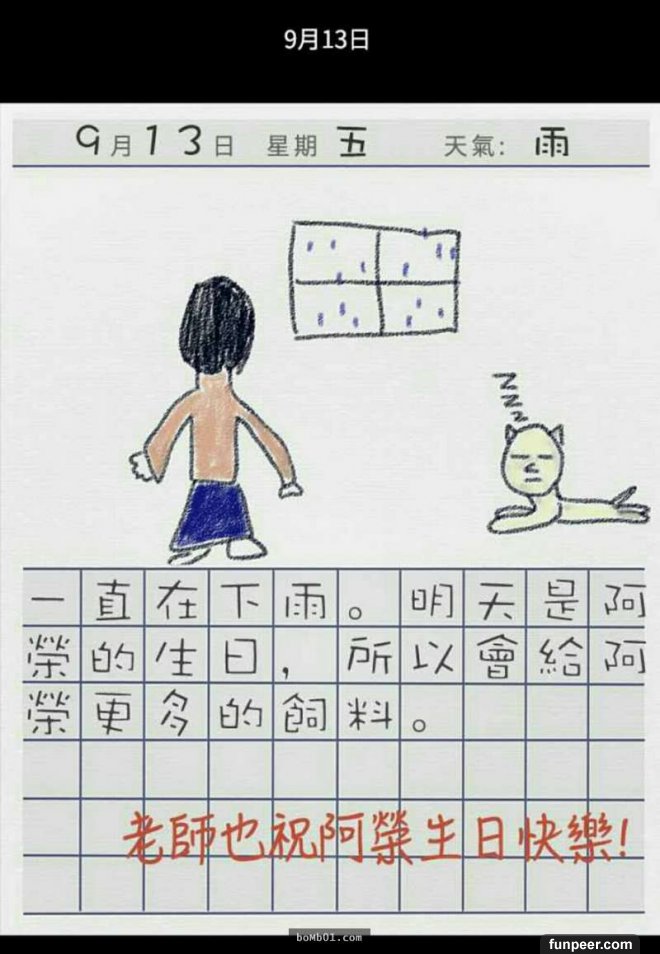 9月13日
9月13日 星期 五 天氣: 雨
z z z
一直在下雨。明天是阿
榮的生日，所以會給阿
榮更多的飼料。
老師也祝阿榮生日快樂!
boMb01.com
funpeer.com